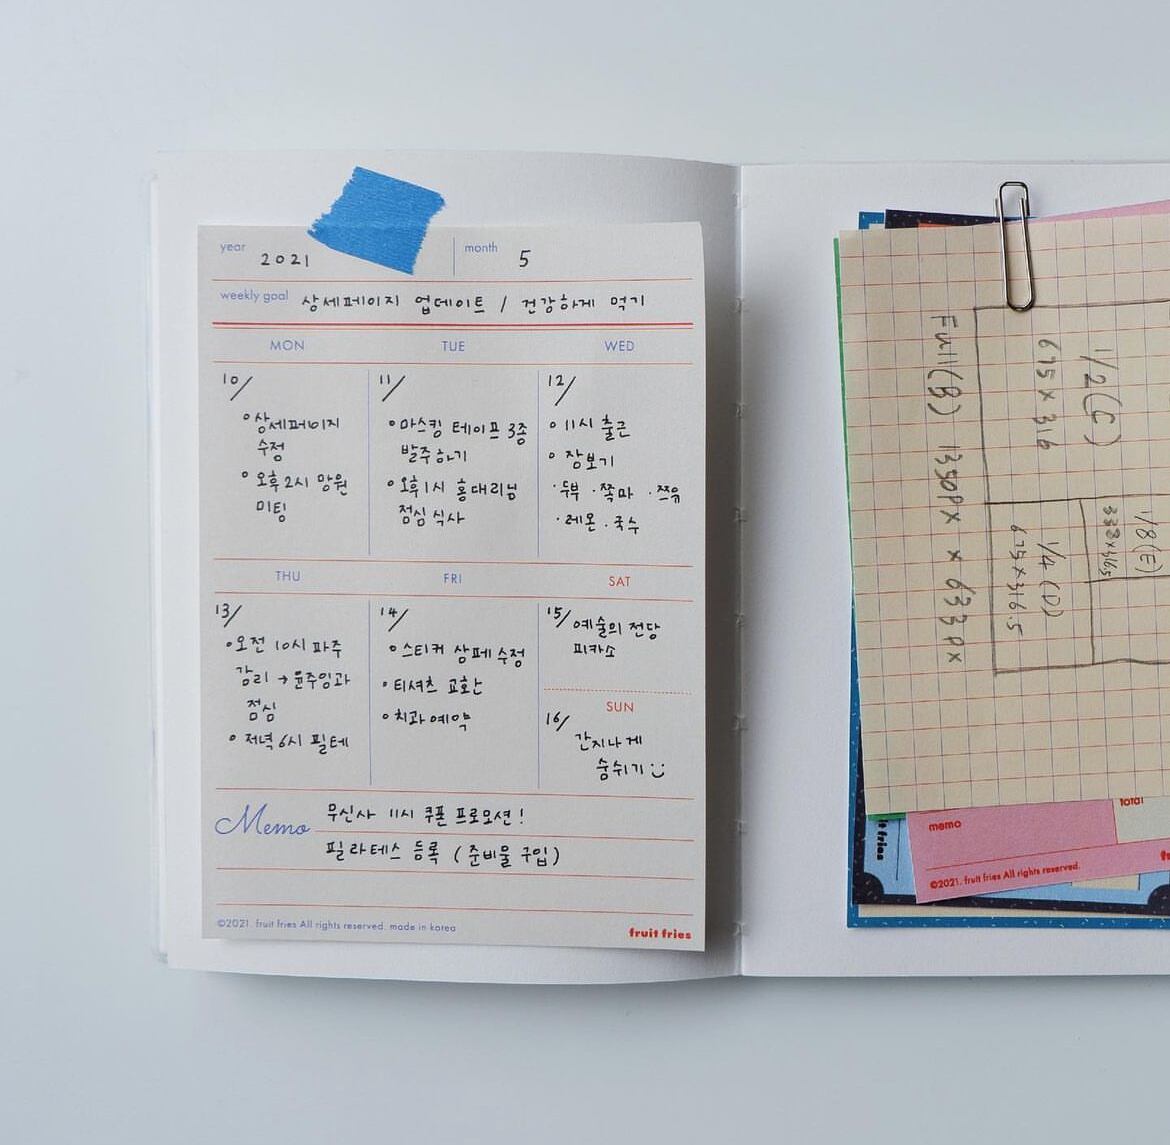 year 2021 month 5
weekly goal 상세페이지 업데이트 / 건강하게 먹기
MON TUE WED
10/
○상세페이지
수정
○오후 2시 망원
미팅
11/
○마스킹 테이프 3종
발주하기
○오후 1시 홍대리님
점심 식사
12/
○11시 출근
○장보기
·두부 ·쪽파 ·쯔유
·레몬 ·국수
THU FRI SAT
13/
○오전 10시 파주
감리 → 윤주임과
점심
○저녁 6시 필테
14/
○스티커 상페 수정
○티셔츠 교환
○치과 예약
15/ 예술의 전당
피카소
SUN
16/
간지나게
숨쉬기
Memo 무신사 11시 쿠폰 프로모션!
필라테스 등록 (준비물 구입)
©2021. fruit fries All rights reserved. made in korea
fruit fries
1/2(C)
675 × 316
Full(B) 1350px × 633px
1/4(D)
675 × 316.5
1/8(E)
total
memo
©2021. fruit fries All rights reserved.